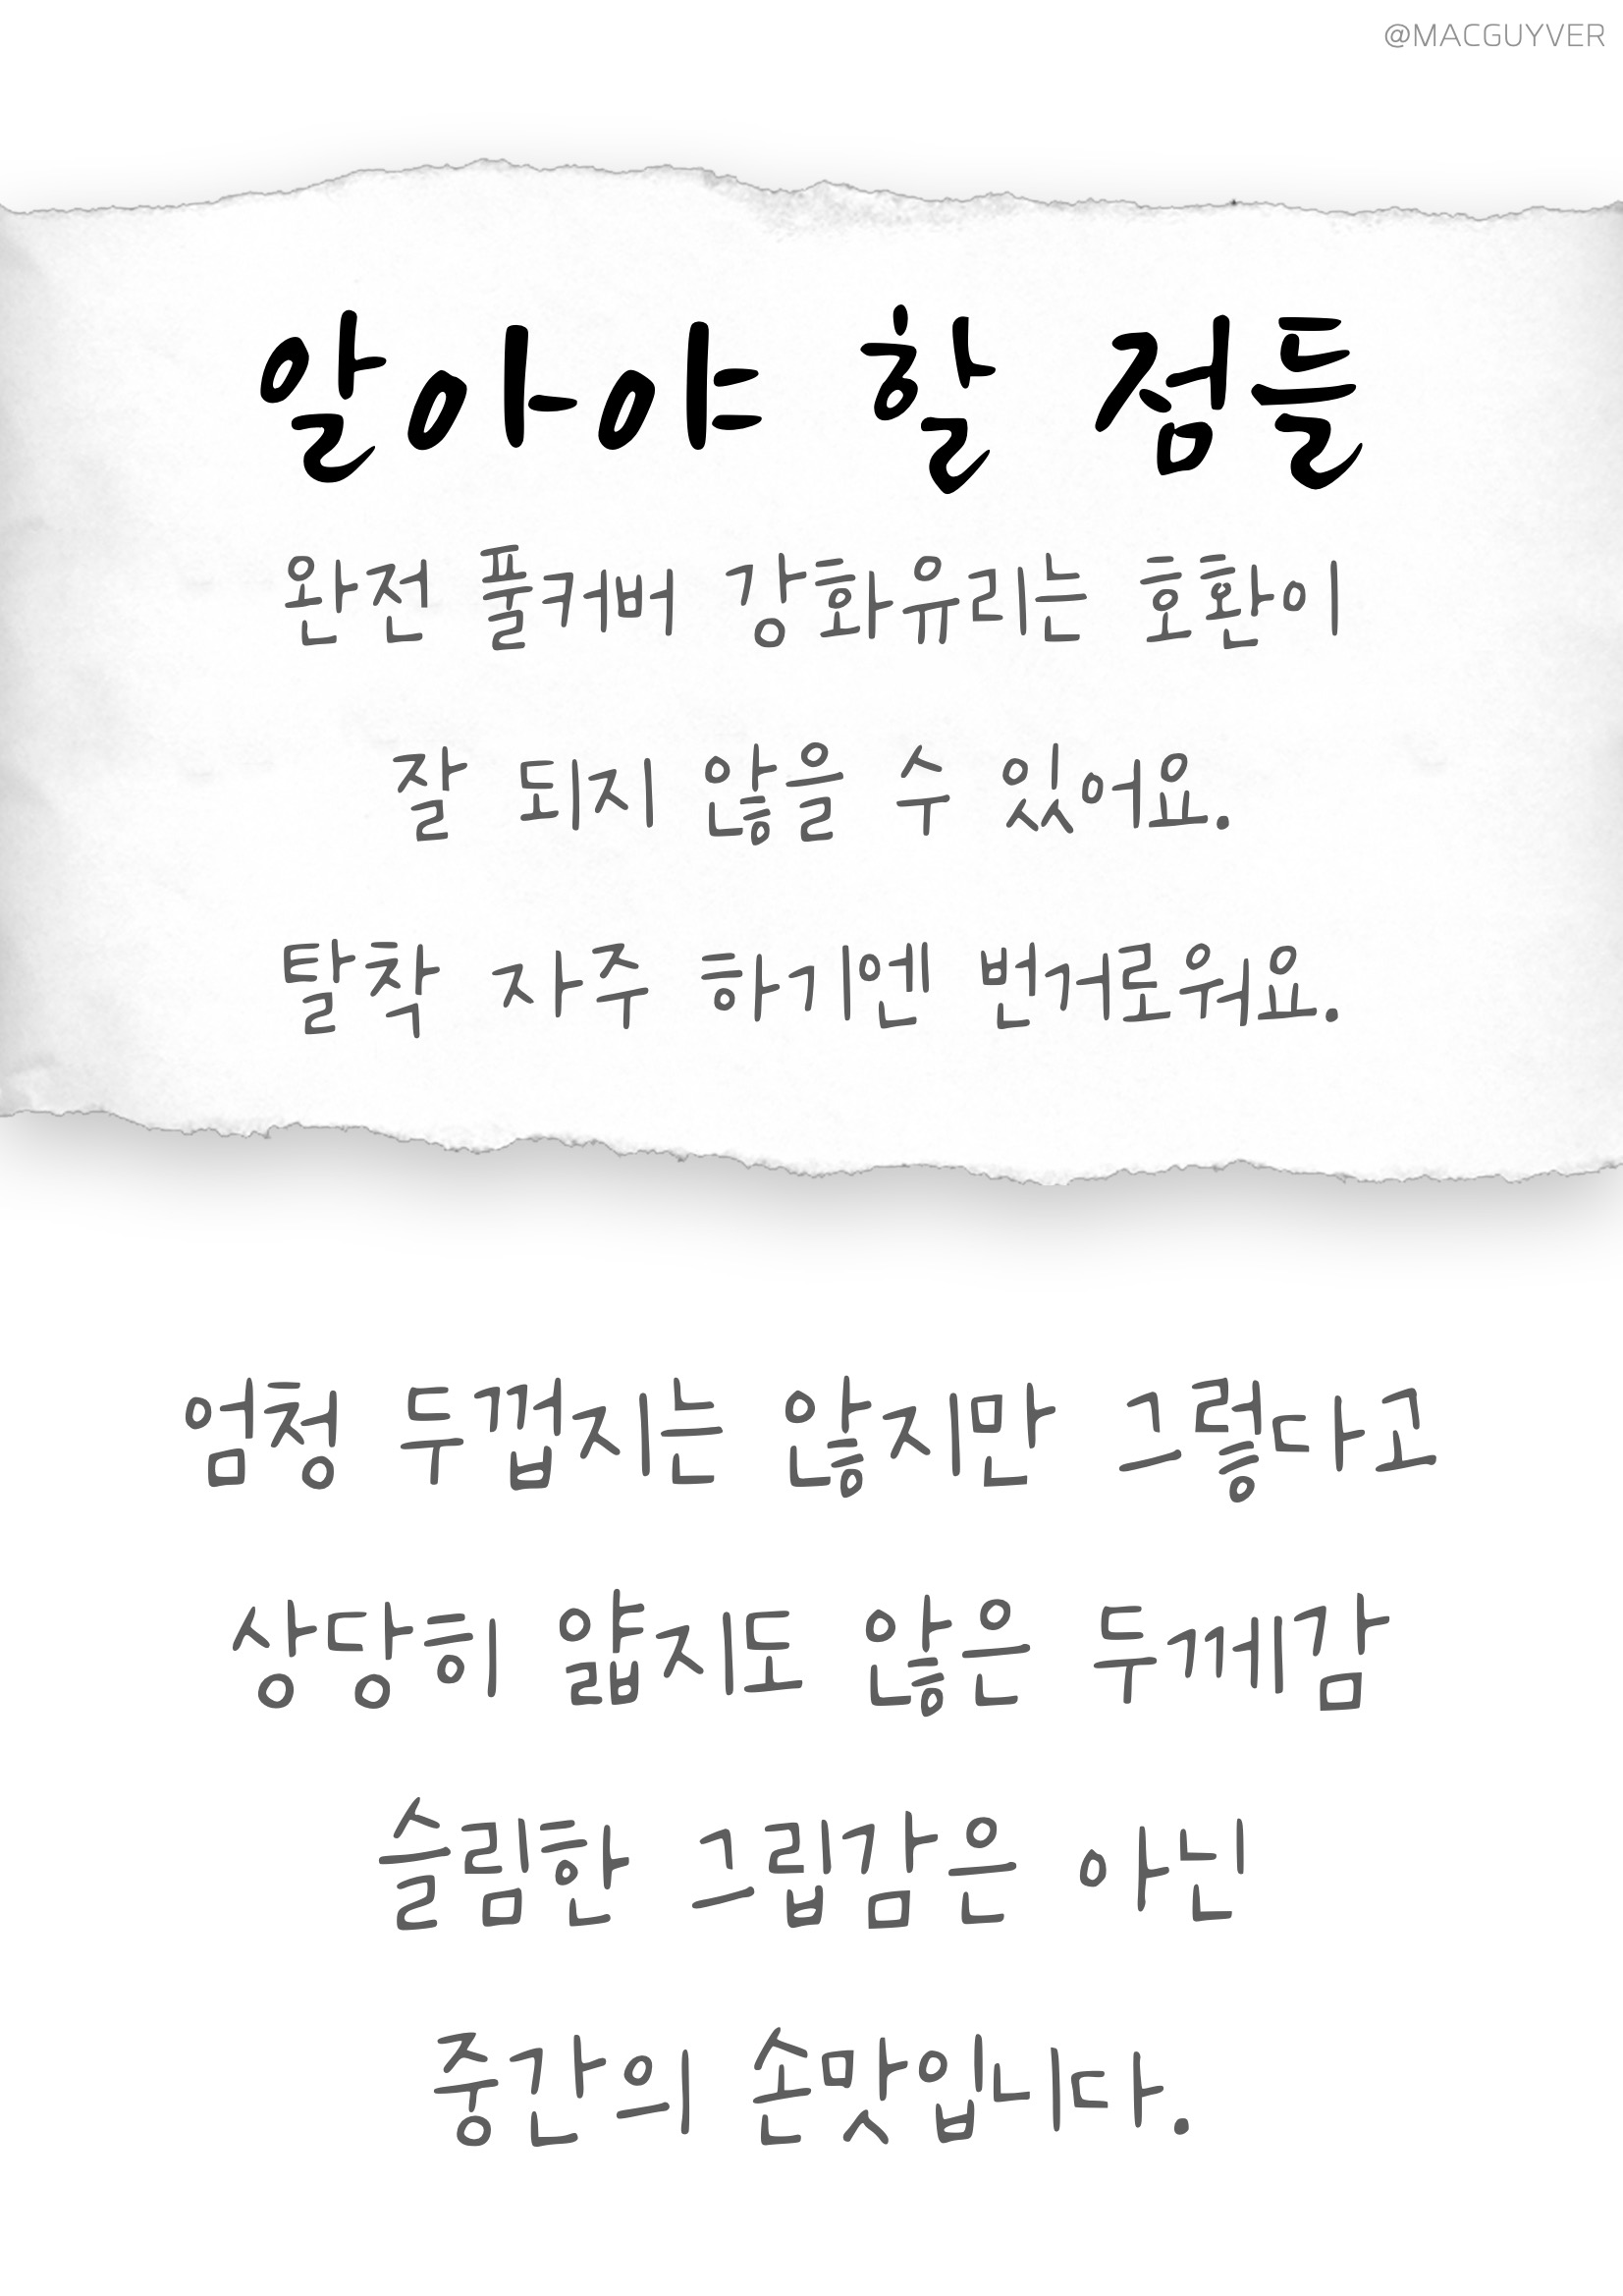 @MACGUYVER
알아야 할 점들
완전 풀커버 강화유리는 호환이
잘 되지 않을 수 있어요.
탈착 자주 하기엔 번거로워요.
엄청 두껍지는 않지만 그렇다고
상당히 얇지도 않은 두께감
슬림한 그립감은 아닌
중간의 손맛입니다.